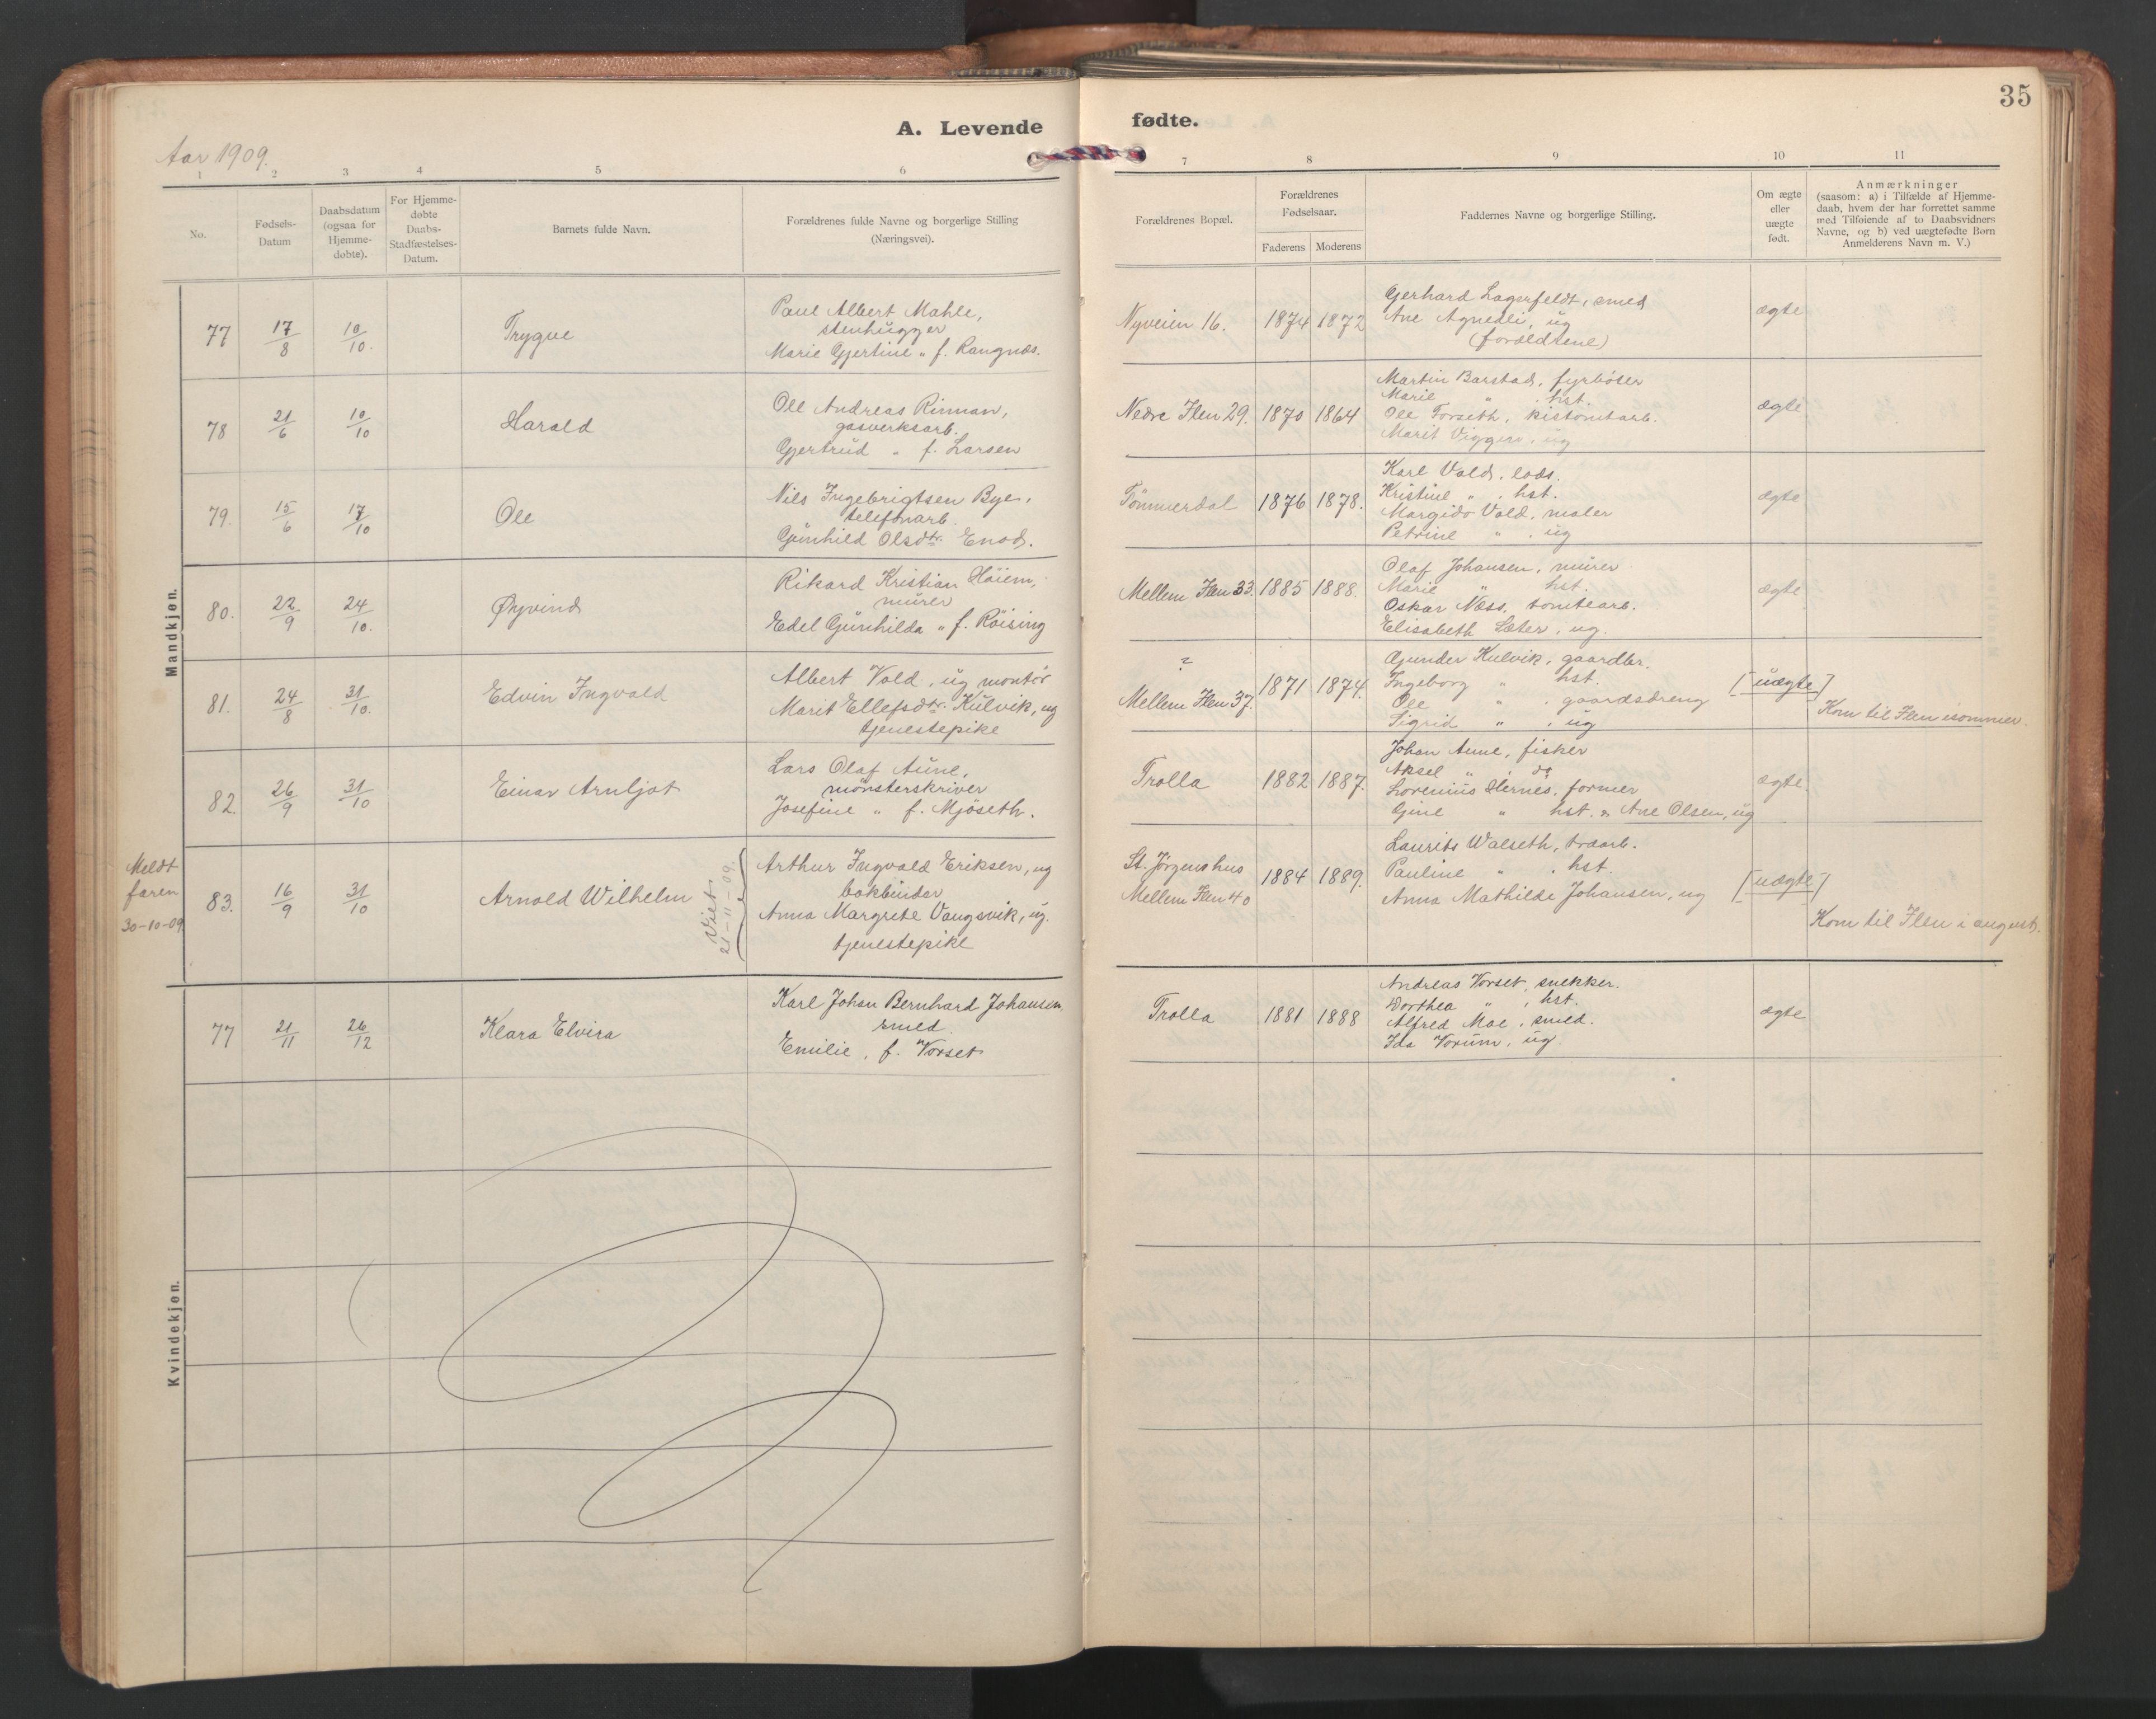 35
A. Levende fødte.
Aar 1909.
1 2 3 4 5 6 7 8 9 10 11
No.
Fødsels-
Datum
Daabsdatum
(ogsaa for
Hjemme-
døbte).
For Hjemme-
døbte
Daabs-
Stadfæstelses-
Datum.
Barnets fulde Navn.
Forældrenes fulde Navne og borgerlige Stilling
(Næringsvei).
Forældrenes Bopæl.
Forældrenes
Fødselsaar.
Faderens Moderens
Faddernes Navne og borgerlige Stilling.
Om ægte
eller
uægte
født.
Anmærkninger
(saasom: a) i Tilfælde af Hjemme-
daab, hvem der har forrettet samme
med Tilføiende af to Daabsvidners
Navne, og b) ved uægtefødte Børn
Anmelderens Navn m. V.)
Mandkjøn.
77 17/8 10/10. Trygve
Paul Albert Mahle,
stenhugger
Marie Gjertine " f. Rangnæs.
Nyveien 16. 1874 1872
Gerhard Lagerfeldt, smed
Ane Agnedli, ug
(forældrene)
ægte
78 21/6 10/10 Harald
Ole Andreas Rinman,
gasverksarb.
Gjertrud " f. Larsen
Nedre Ilen 29. 1870 1864
Martin Barstad, fyrbøter
Marie " hst.
Ole Forseth, kistomtarb.
Marit Viggen, ug
ægte
79. 15/6 17/10 Ole
Nils Ingebrigtsen Bye,
telefonarb.
Gunhild Olsdtr. Enod.
Tömmerdal 1876 1878.
Karl Vold, lods.
Kristine " , hst.
Margido Vold, maler
Petrine " , ug
ægte
80. 22/9 24/10. Øyvind
Rikard Kristian Höiem,
murer
Edel Gunhilda " f. Röising
Mellem Ilen 33. 1885 1888.
Olaf Johansen, murer
Marie " hst.
Oskar Næss, tomtearb.
Elisabeth Sæter, ug.
ægte
81. 24/8 31/10. Edvin Ingvald
Albert Vold, ug montör
Marit Ellefsdtr. Kulvik, ug
tjenestepike
?
Mellem Ilen 37. 1871 1874.
Gunder Kulvik, gaardbr.
Ingeborg " hst.
Ole " , gaardsdreng
Sigrid " , ug
[uægte]
Kom til Ilen isommer.
82. 26/9 31/10 Einar Arnljot
Lars Olaf Aune,
mønsterskriver
Josefine " f. Mjöseth.
Trolla 1882 1887.
Johan Aune, fisker
Aksel " , do
Lorenius Hernes, former
Gjine " hst. & Ane Olsen, ug
ægte.
Meldt
faren
30-10-09
83. 16/9 31/10 Arnold Wilhelm
Viet
21-11-09.
Arthur Ingvald Eriksen, ug
bokbinder
Anna Margrete Vangsvik, ug.
tjenestepike
St. Jørgens hus
Mellem Ilen 40
1884 1889.
Laurits Walseth, træarb.
Pauline " , hst.
Anna Mathilde Johansen, ug
[uægte]
Kom til Ilen i august.
Kvindekjøn.
77 21/11 26/12 Klara Elvira
Karl Johan Bernhard Johansen
smed.
Emilie, f. Vorset
Trolla 1881 1888
Andreas Vorset, snekker.
Dorthea " , hst.
Alfred Moe, smed.
Ida Vorum, ug.
ægte